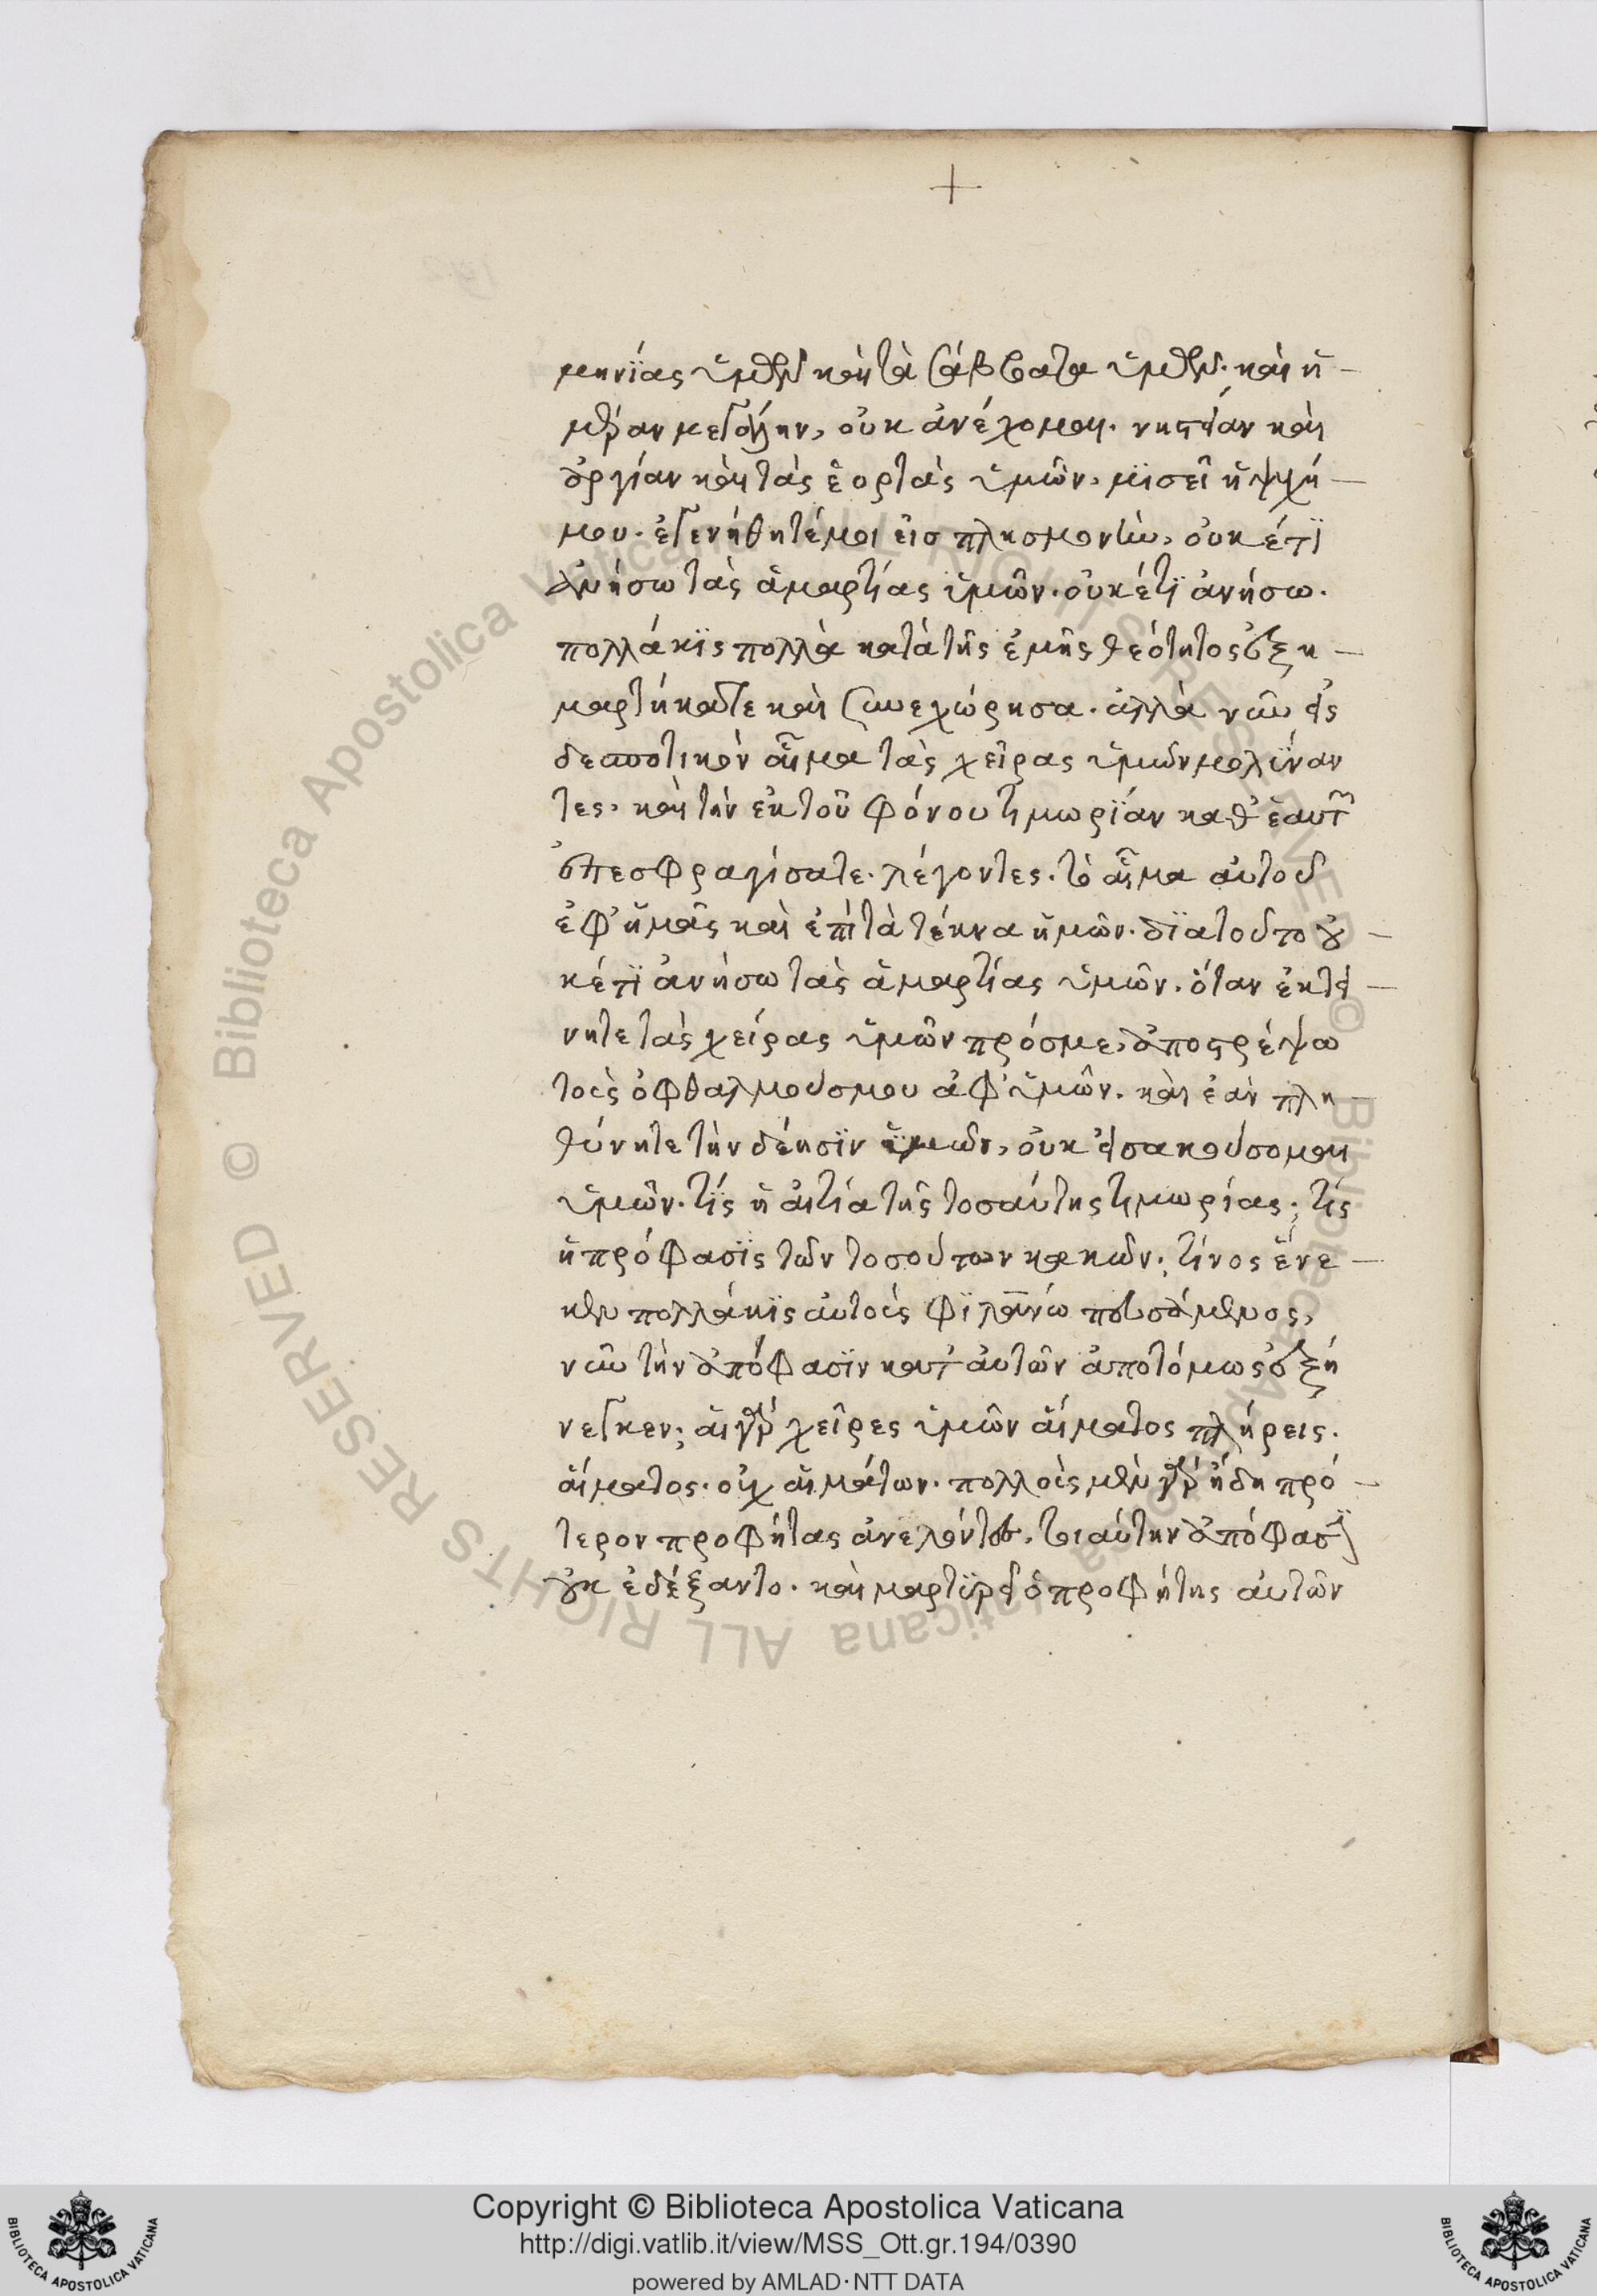 +
μηνίας ὑμῶν καὶ τὰ σάββατα ὑμῶν. καὶ ἡ-
μέραν μεγάλην, οὐκ ἀνέχομαι. νηστείαν καὶ
ἀργίαν καὶ τὰς ἑορτὰς ὑμῶν, μϊσεῖ ἡ ψυχή
μου. ἐγενήθητέ μοι εἰσ πλησμονὴν, οὐκ έτϊ
ἀνήσω τὰς ἁμαρτίας ὑμῶν. οὐκέτϊ ἀνήσω.
πολλάκϊς πολλὰ κατὰ τῆς ἐμῆς θεότητος ἐξη-
μαρτήκατε καὶ συνεχώρησα. ἀλλὰ νῦν εἰς
δεσποτικὸν αἷμα τὰς χεῖρας ὑμῶν μολύναν
τες. καὶ τὴν ἐκ τοῦ φόνου τιμωρΐαν καθ' ἑαυτῶν
ἐπεσφραγίσατε. λέγοντες. τὸ αἷμα αὐτοῦ
ἐφ' ἡμᾶς καὶ ἐπὶ τὰ τέκνα ἡμῶν. δϊατοῦτο οὐ-
κέτϊ ἀνήσω τὰς ἁμαρτίας ὑμῶν. ὅταν ἐκτεί-
νητε τὰς χείρας ὑμῶν πρόσμε, ἀποστρέψω
τοὺς ὀφθαλμούσμου ἀφ' ὑμῶν. καὶ ἐὰν πλη-
θύνητε τὴν δέησϊν ὑμῶν, οὐκ εἰσακούσομαι
ὑμῶν. τίς ἡ αἰτία τῆς τοσαύτης τιμωρίας; τίς
ἡ πρόφασϊς τῶν τοσούτων κακῶν; τίνος ἕνε-
κεν πολλάκϊς αὐτοὺς φϊλανω ποιησάμενος,
νῦν τὴν ἀπόφασϊν κατ' αὐτῶν ἀποτόμως ἐξή
νεγκεν; αἱ γὰρ χεῖρες ὑμῶν αἵματος πλήρεις.
αἵματος. οὐχ αἱμάτων. πολλοὺς μὲν γὰρ ἤδη πρό-
τερον προφήτας ἀνελόντες. τοιαύτην ἀπόφασϊν
οὐκ ἐδέξαντο. καὶ μαρτϋρεῖ ὁ προφήτης αὐτῶν
Copyright © Biblioteca Apostolica Vaticana
http://digi.vatlib.it/view/MSS_Ott.gr.194/0390
powered by AMLAD·NTT DATA